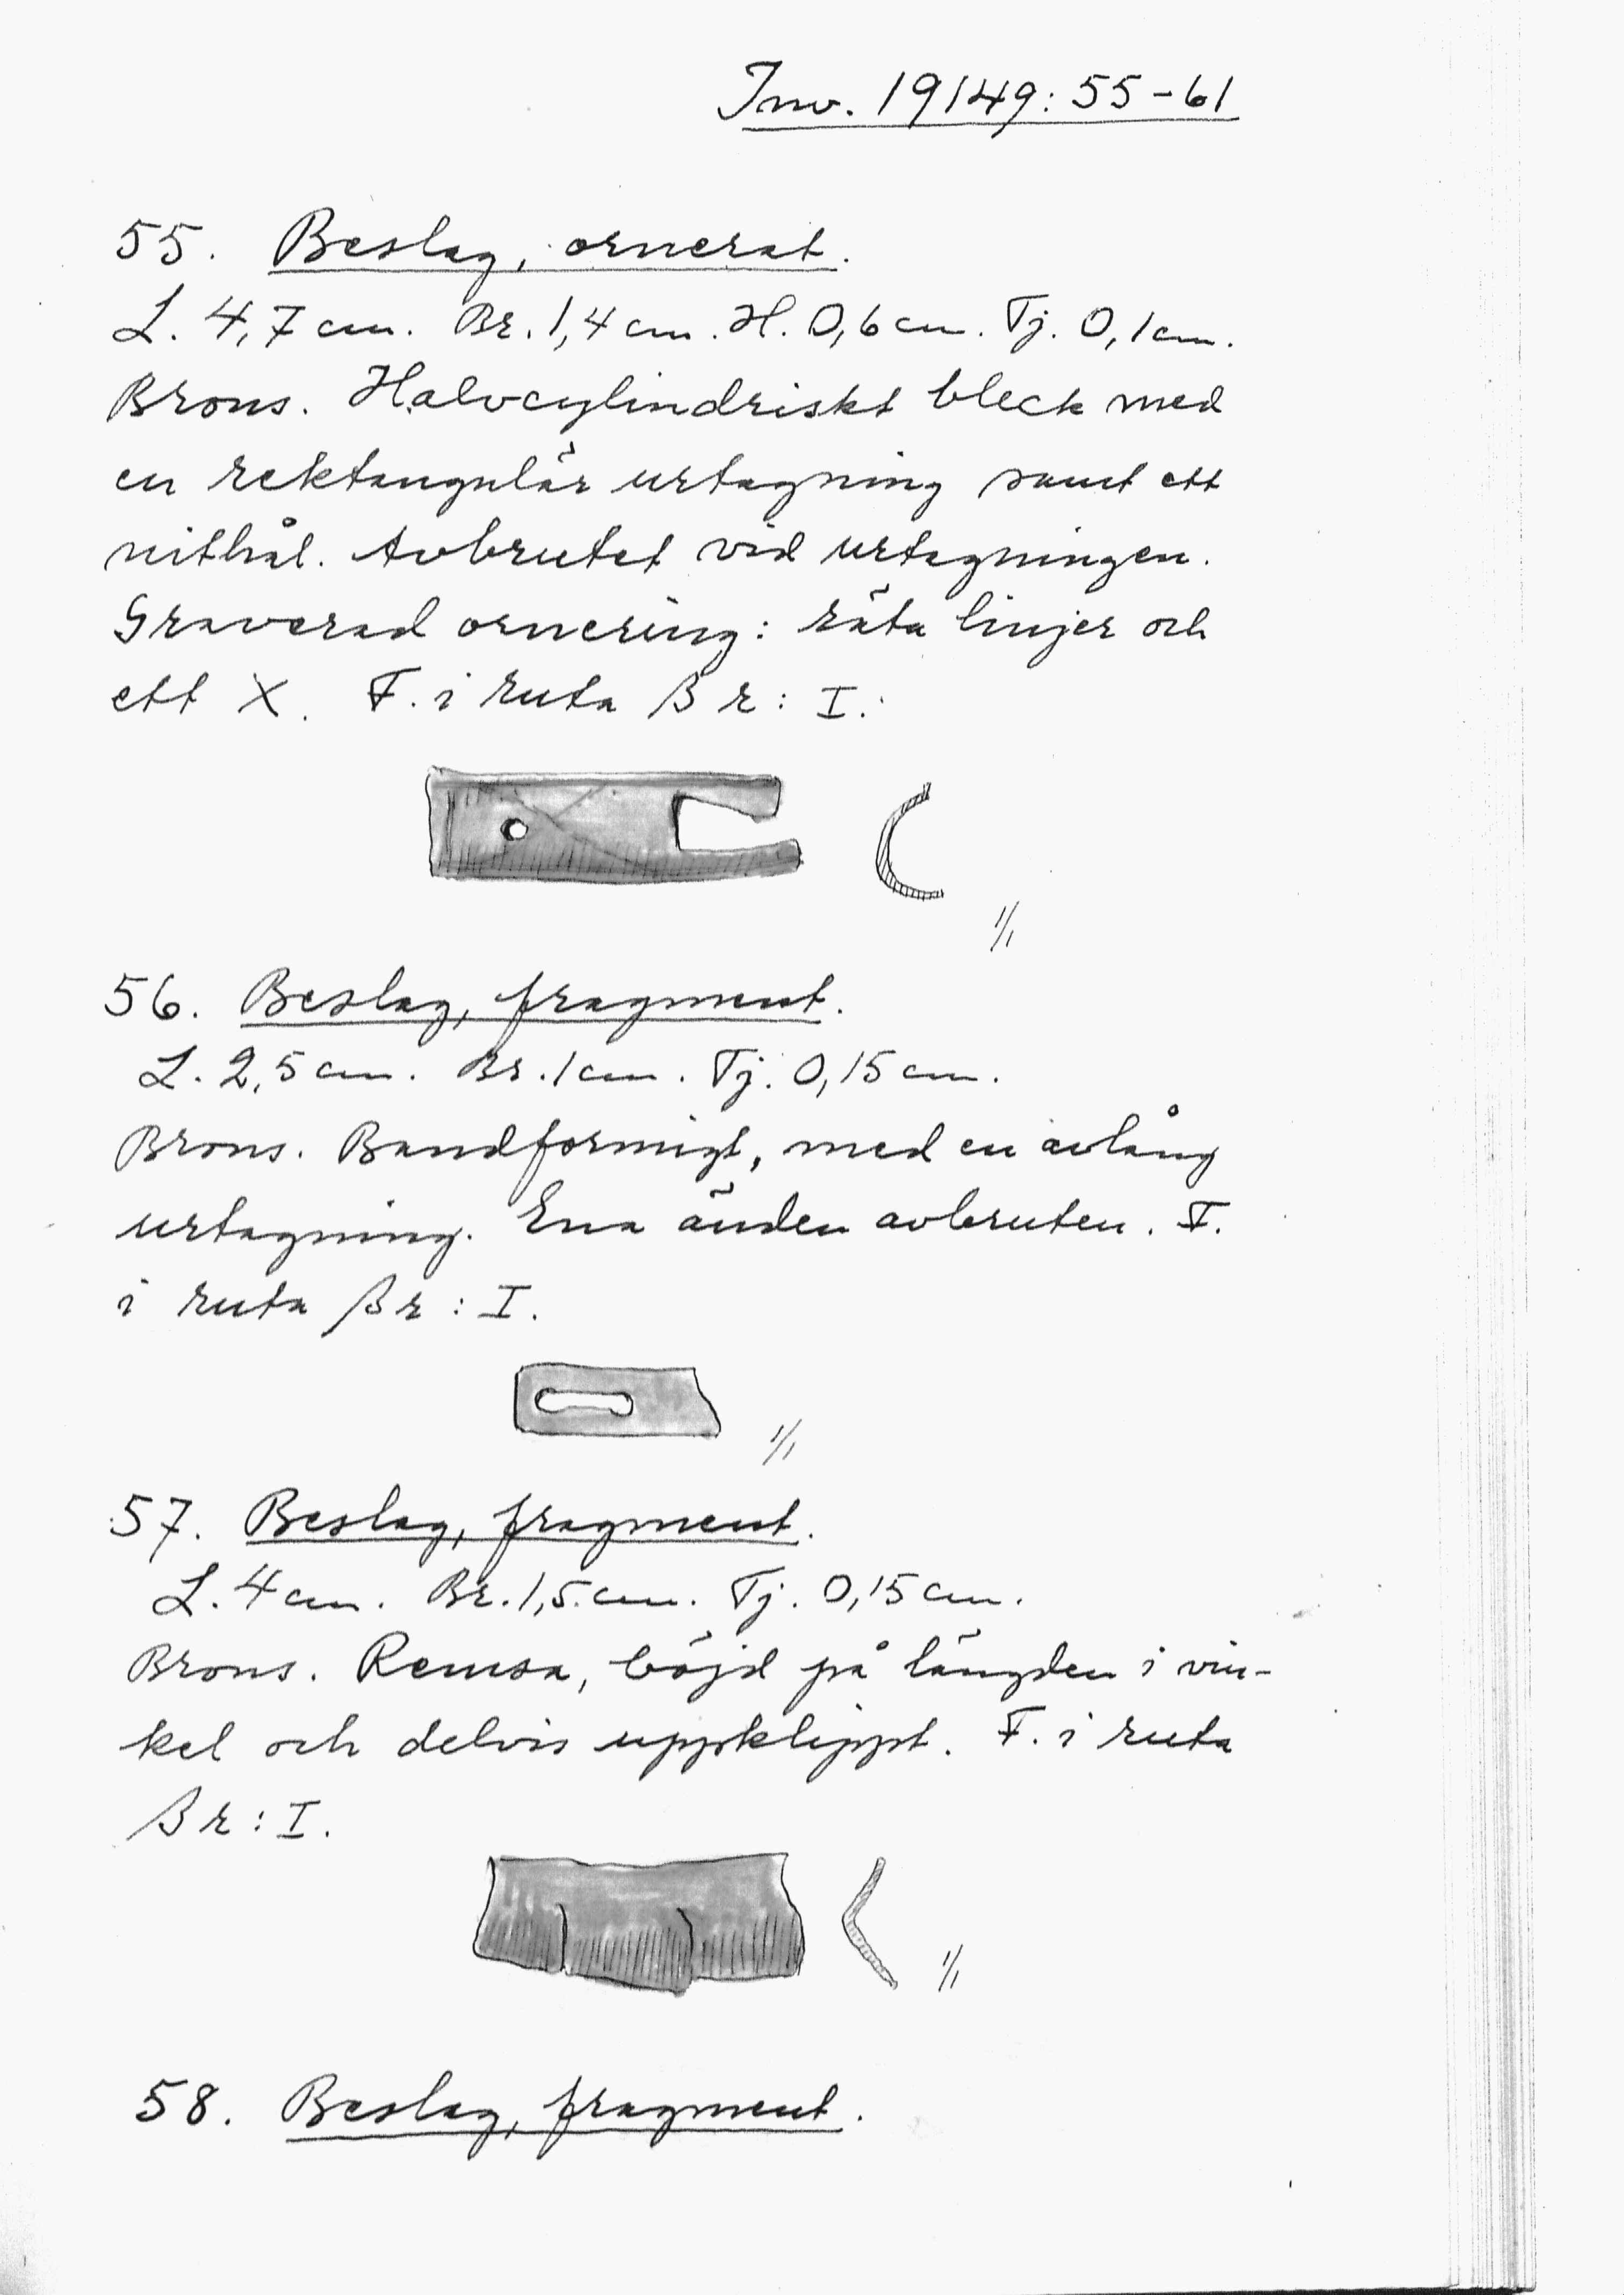 Inv. 19149: 55-61
55. Beslag, ornerat.
L. 4,7 cm. Br. 1,4 cm. H. 0,6 cm. Tj. 0,1 cm.
Brons. Halvcylindriskt bleck med
en rektangulär urtagning samt ett
nithål. Avbrutet vid urtagningen.
Graverad ornering: räta linjer och
ett X. F. i ruta βr: I.
1/1
56. Beslag, fragment.
L. 2,5 cm. Br. 1 cm. Tj. 0,15 cm.
Brons. Bandformigt, med en avlång
urtagning. Ena änden avbruten. F.
i ruta βr: I.
1/1
57. Beslag, fragment.
L. 4 cm. Br. 1,5 cm. Tj. 0,15 cm.
Brons. Remsa, böjd på längden i vin-
kel och delvis uppklippt. F. i ruta
βr: I.
1/1
58. Beslag, fragment.